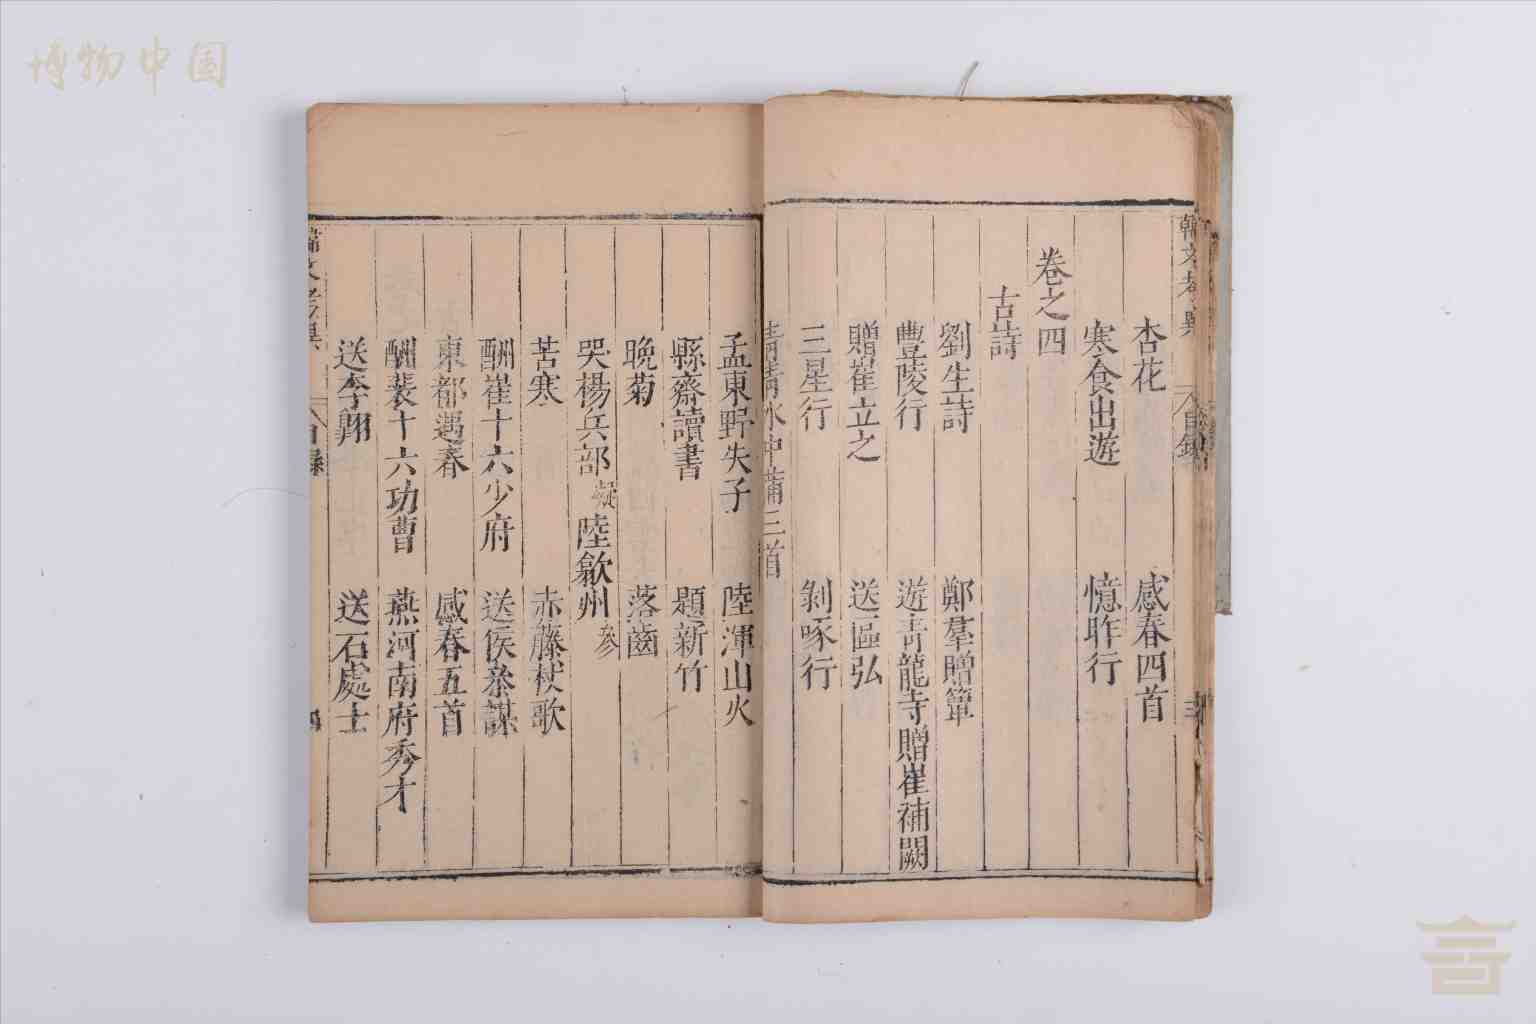 博物中国
韓文考異
目錄
三
杏花 感春四首
寒食出遊 憶昨行
卷之四
古詩
劉生詩 鄭羣贈簟
豐陵行 遊青龍寺贈崔補闕
贈崔立之 送區弘
三星行 剝啄行
青青水中蒲三首
孟東野失子 陸渾山火
縣齋讀書 題新竹
晚菊 落齒
哭楊兵部凝陸歙州參
苦寒 赤藤杖歌
酬崔十六少府 送侯叅謀
東都遇春 感春五首
酬裴十六功曹 燕河南府秀才
送李翺 送石處士
韓文考異
目錄